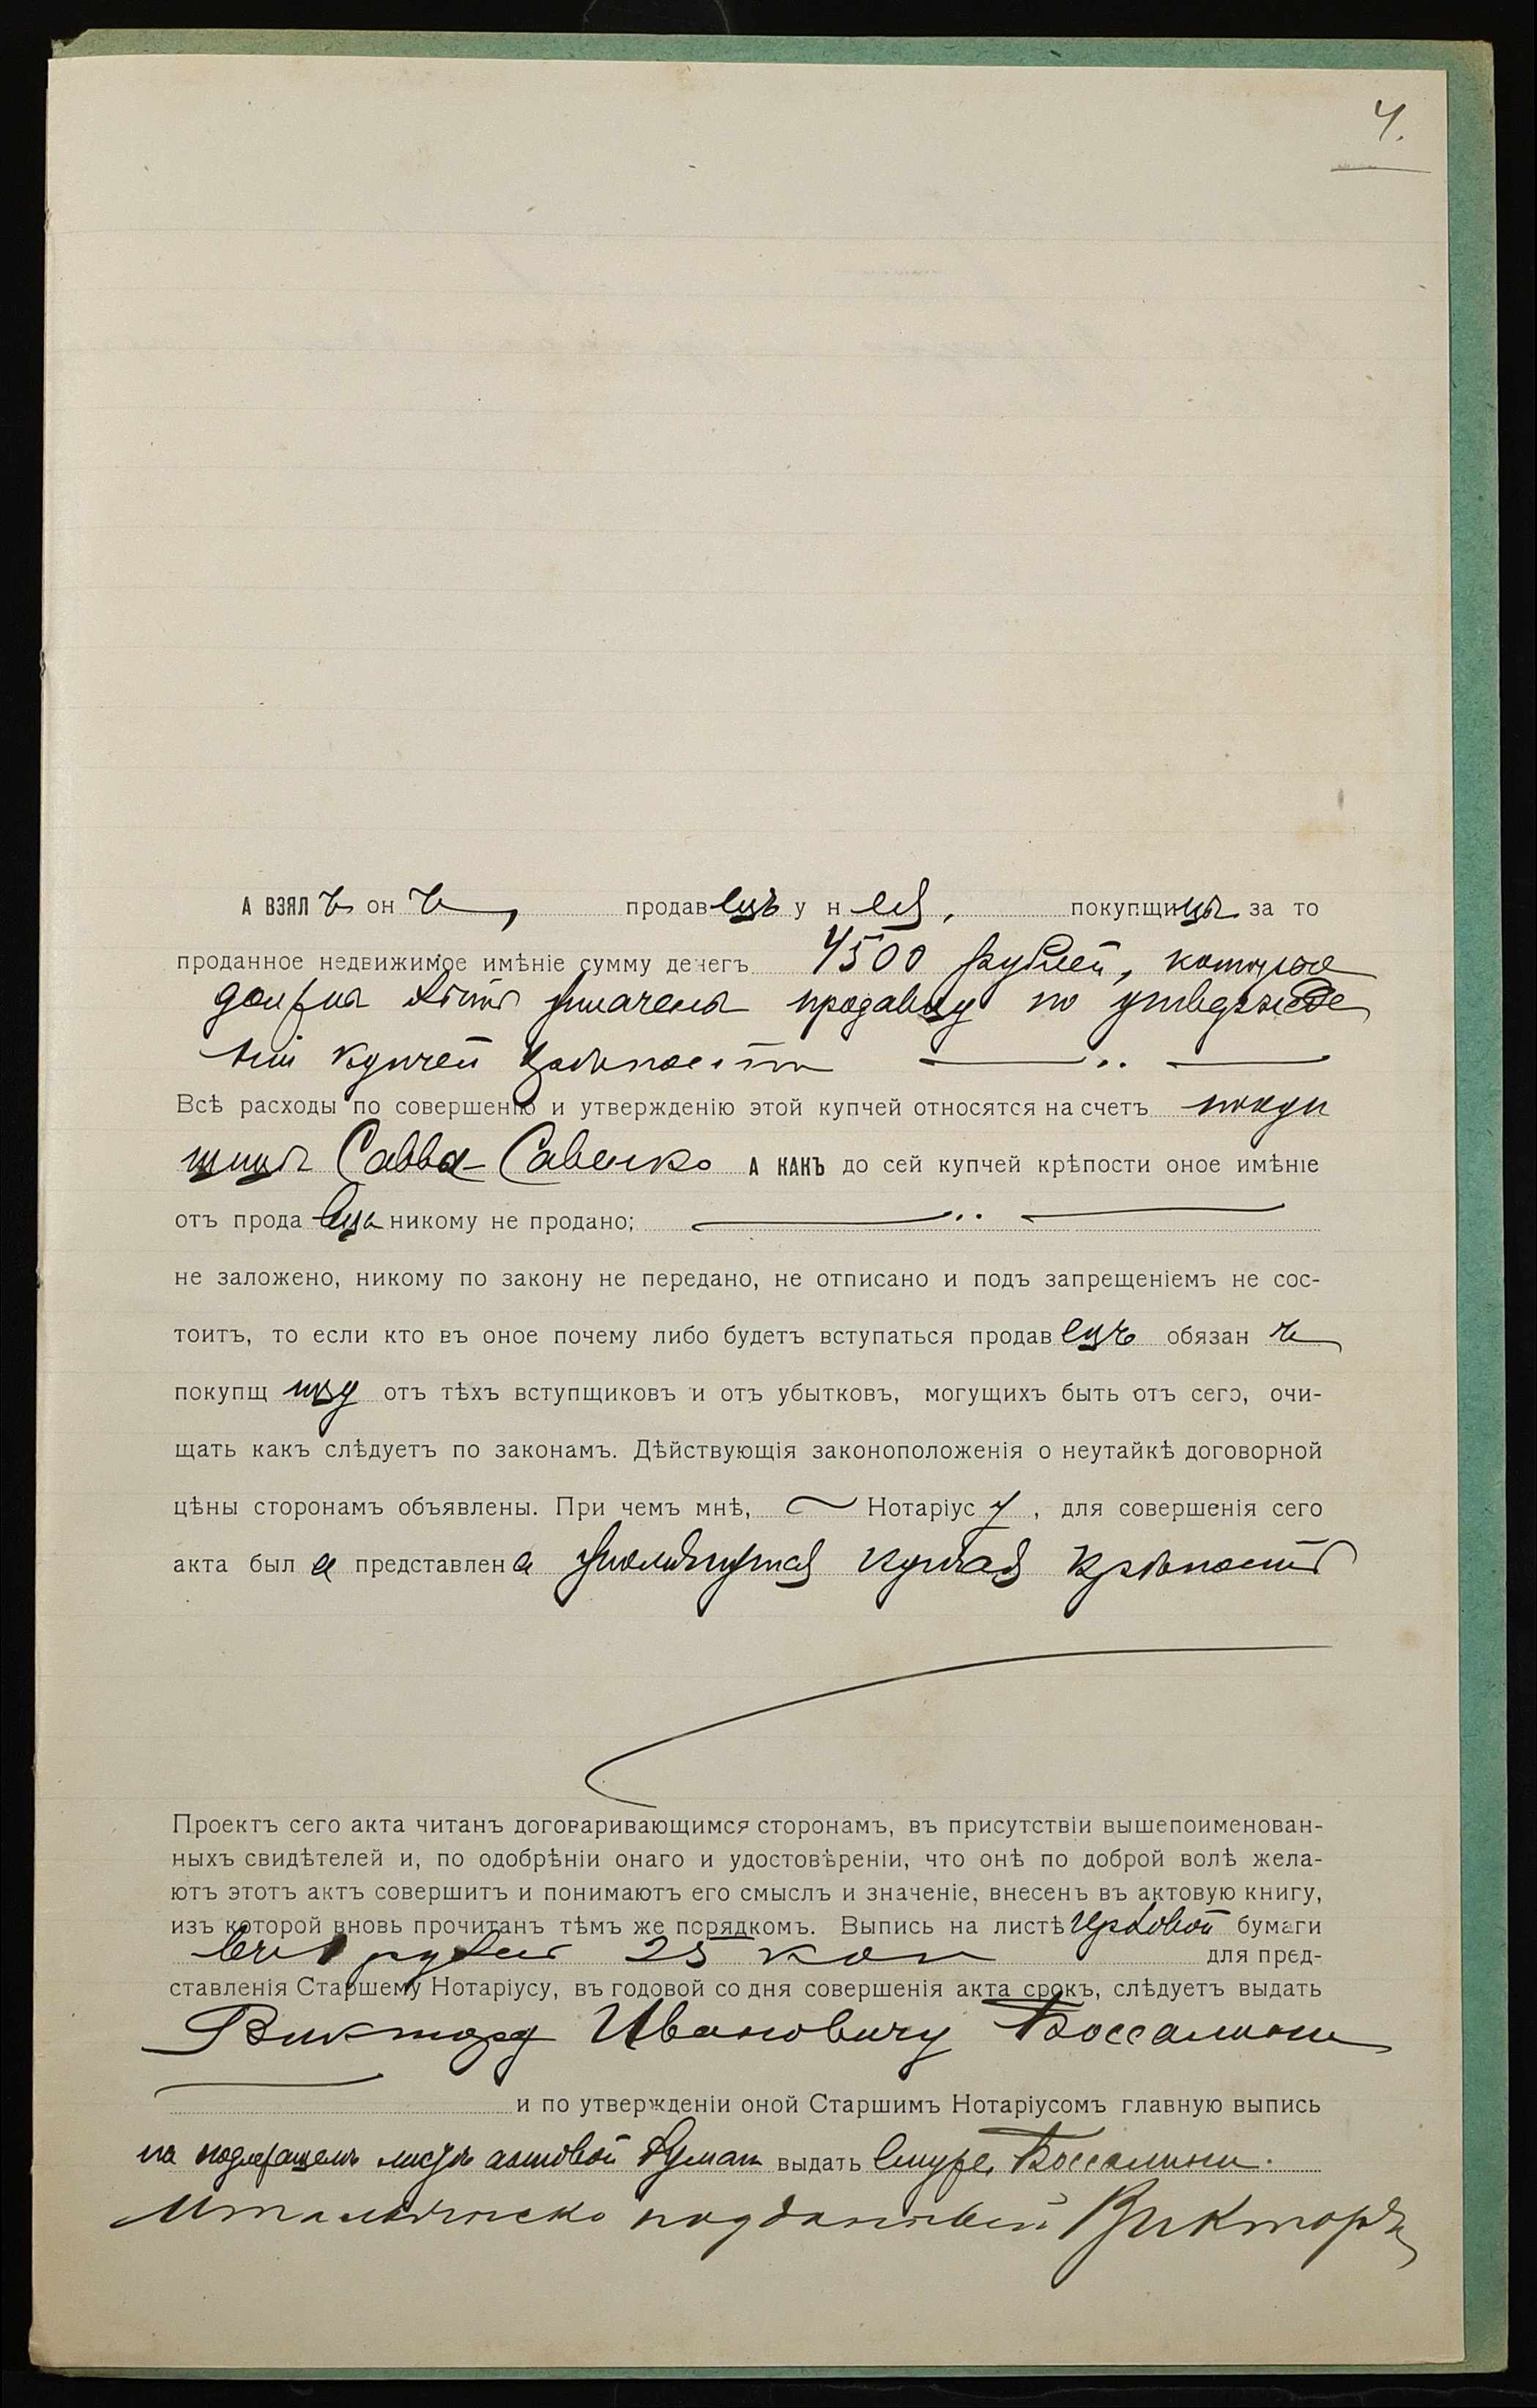 4.
А ВЗЯЛЪ онъ, продавецъ у нея, покупщицы за то
проданное недвижимое имѣніе сумму денегъ 4500 рублей, которые
должны быть уплачены продавцу по утвержде
ніи купчей крѣпости
Всѣ расходы по совершенію и утвержденію этой купчей относятся на счетъ покуп
щицы Савва-Савенко А КАКЪ до сей купчей крѣпости оное имѣніе
отъ продавца никому не продано;
не заложено, никому по закону не передано, не отписано и подъ запрещеніемъ не сос-
тоитъ, то если кто въ оное почему либо будетъ вступаться продавецъ обязанъ
покупщицу отъ тѣхъ вступщиковъ и отъ убытковъ, могущихъ быть отъ сего, очи-
щать какъ слѣдуетъ по законамъ. Дѣйствующія законоположенія о неутайкѣ договорной
цѣны сторонамъ объявлены. При чемъ мнѣ, Нотаріусу, для совершенія сего
акта была представлена упомянутая купчая крѣпость
Проектъ сего акта читанъ договаривающимся сторонамъ, въ присутствіи вышепоименован-
ныхъ свидѣтелей и, по одобрѣніи онаго и удостовѣреніи, что онѣ по доброй волѣ жела-
ютъ этотъ актъ совершить и понимаютъ его смыслъ и значеніе, внесенъ въ актовую книгу,
изъ которой вновь прочитанъ тѣмъ же порядкомъ. Выпись на листѣ гербовой бумаги
въ 1 рубль 25 коп для пред-
ставленія Старшему Нотаріусу, въ годовой со дня совершенія акта срокъ, слѣдуетъ выдать
Виктору Ивановичу Боссалини
и по утвержденіи оной Старшимъ Нотаріусомъ главную выпись
на подлежащемъ листѣ актовой бумаги выдать ему же, Боссалини.
Итальянско подданный Викторъ